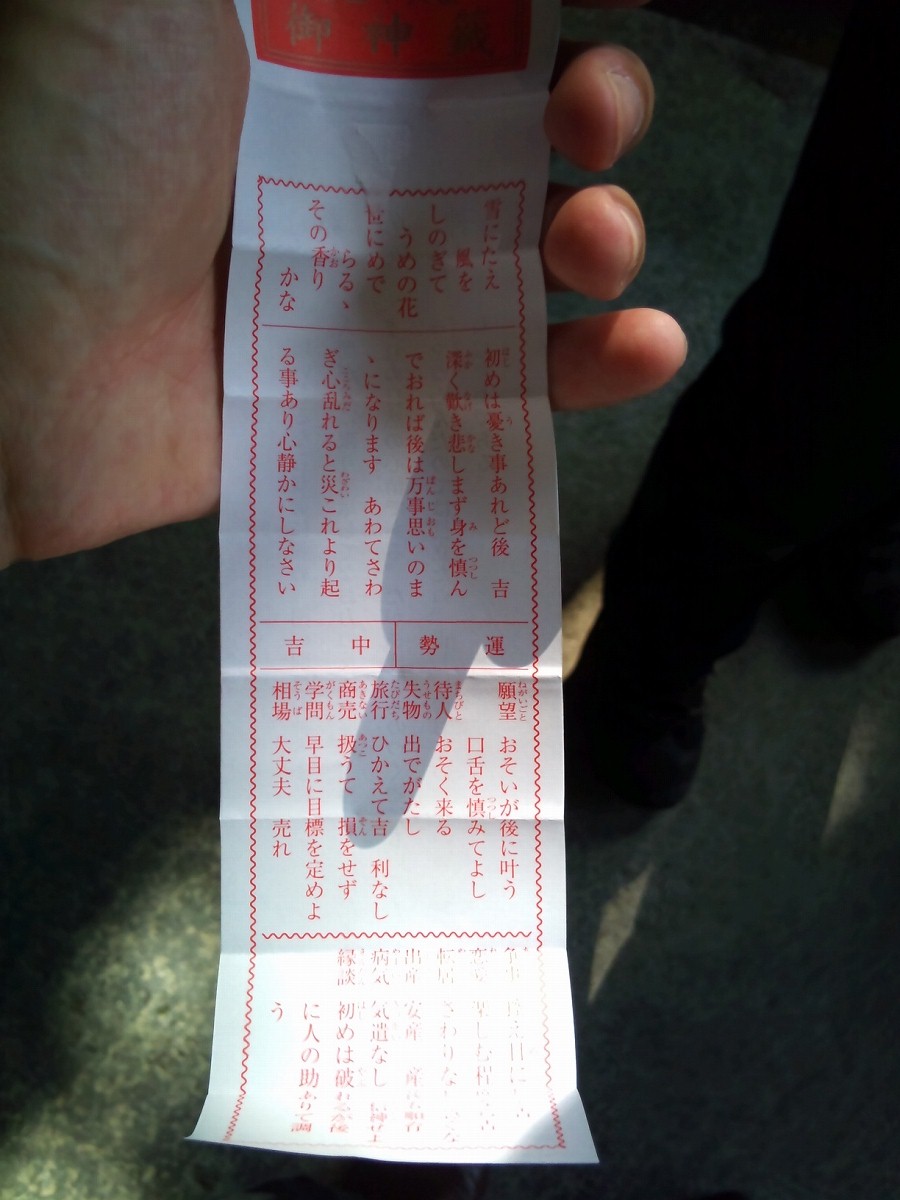 御神籤
雪にたえ
風を
しのぎて
うめの花
世にめで
らるゝ
その香り
かな
初めは憂き事あれど後 吉
深く歎き悲しまず身を慎ん
でおれば後は万事思いのま
ゝになります あわてさわ
ぎ心乱れると災これより起
る事あり心静かにしなさい
運勢 中吉
願望 おそいが後に叶う
口舌を慎みてよし
待人 おそく来る
失物 出でがたし
旅行 ひかえて吉 利なし
商売 扱うて 損をせず
学問 早目に目標を定めよ
相場 大丈夫 売れ
争事 控え目に
恋愛 楽しむ程
転居 さわりなし
出産 安産 産
病気 気遣なし
縁談 初めは破れるが後
に人の助ありて調
う